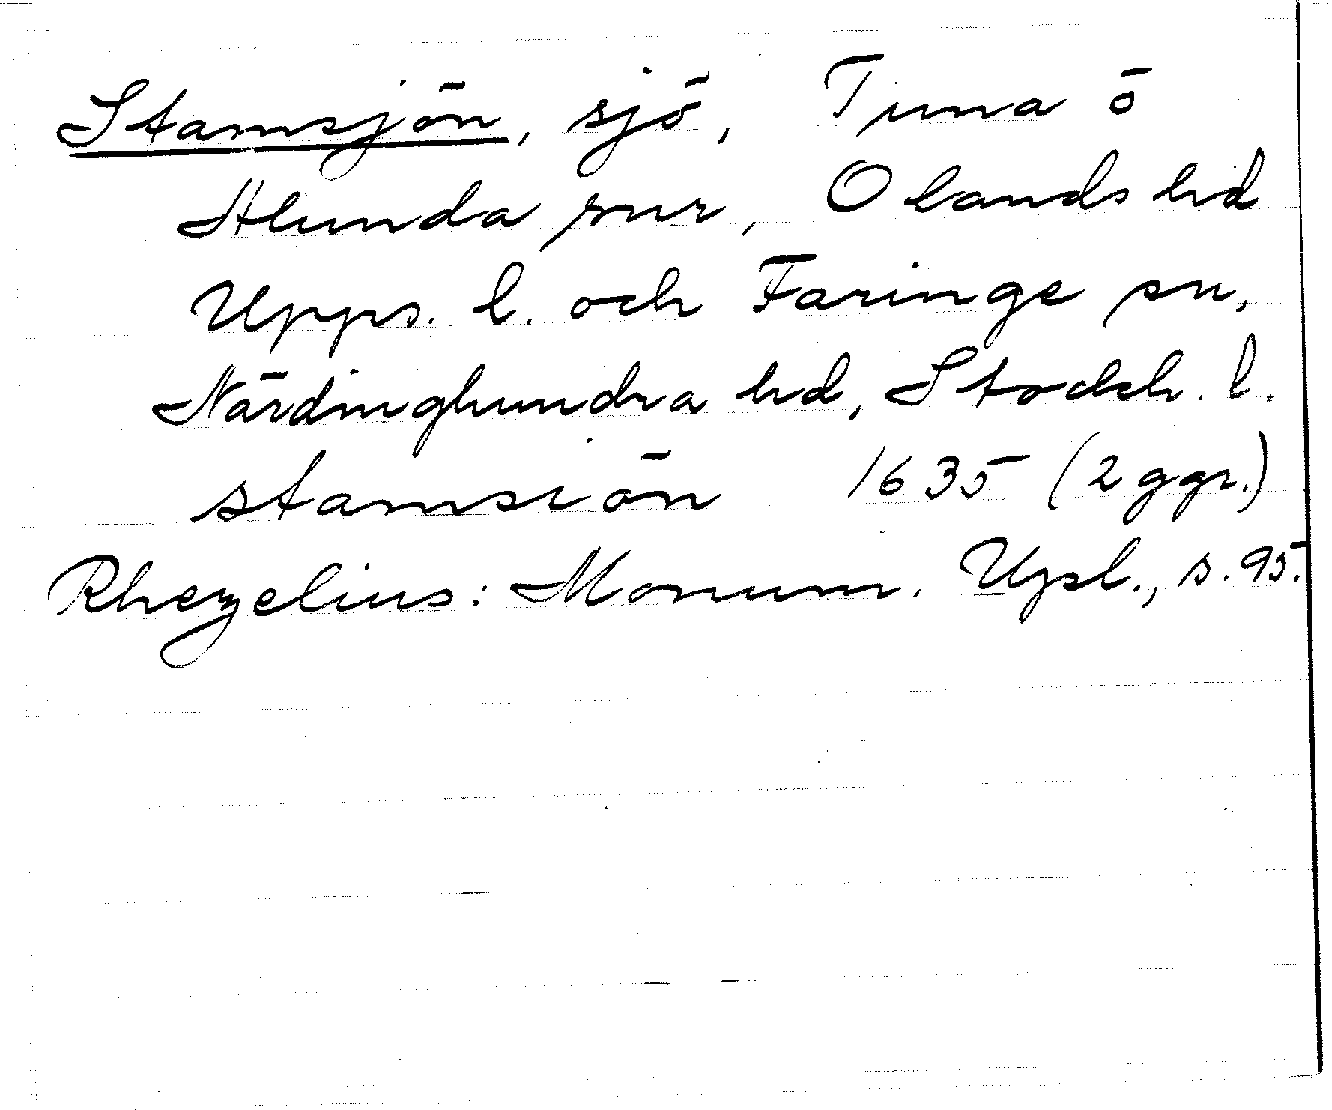 Stamsjön, sjö, Tuna o
Stunda snr, Olands hd
Upps. l. och Faringe sn,
Närdinghundra hd, Stockh. l.
stamsiön 1635 (2 ggr.)
Rhezelius: Monum. Upl., s. 95.